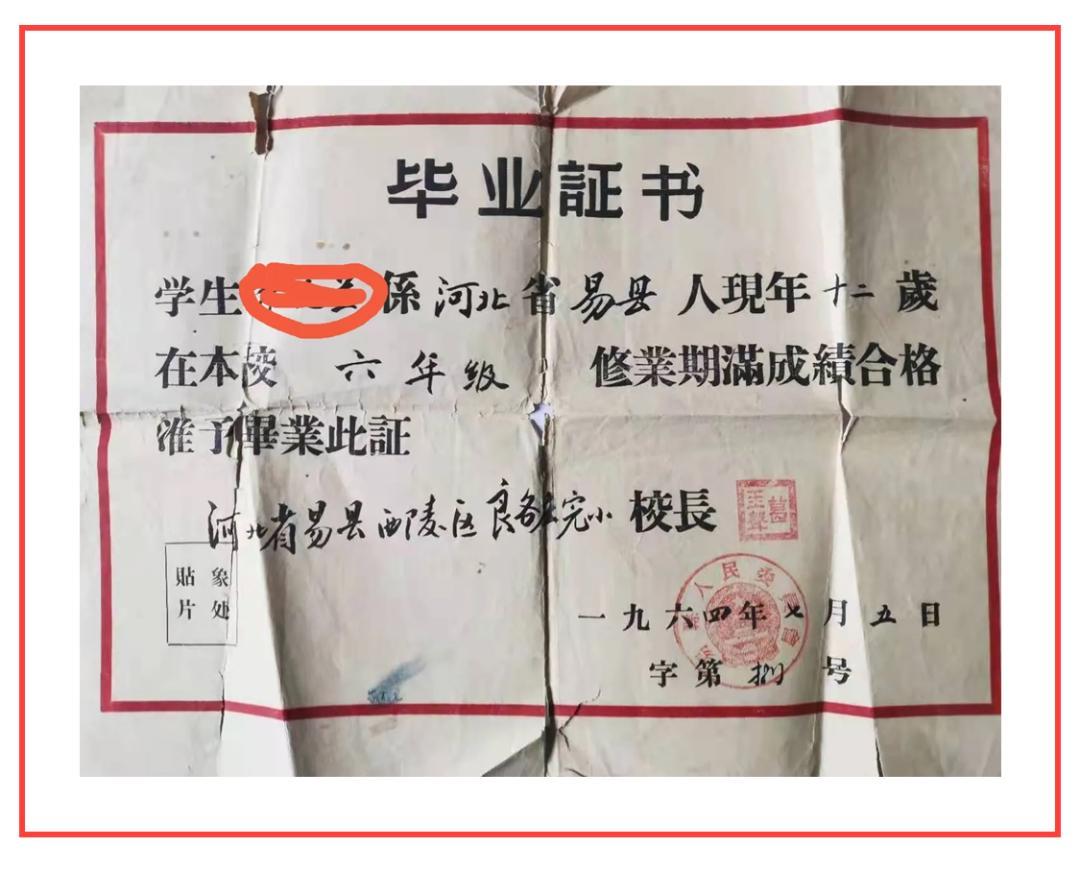 毕业証书
学生 係河北省易县人現年十二歲
在本校六年級修業期滿成績合格
准予畢業此証
河北省易县西陵区良各庄完小校長
葛玉聲
貼象
片处
一九六四年七月五日
字第捌号